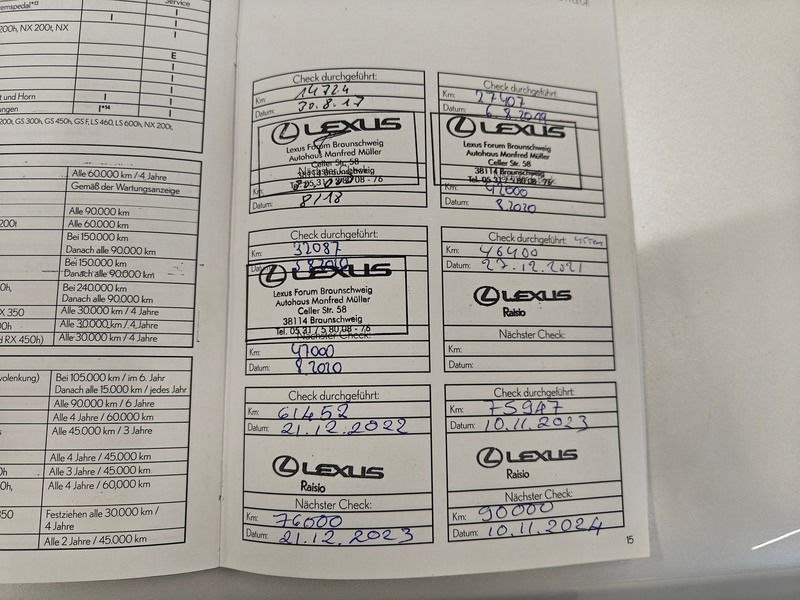 Service
200h, NX 200t, NX
I
I
E
I
I
I
t und Horn
I
I
ungen
I*14
I
200t, GS 300h, GS 450h, GS F, LS 460, LS 600h, NX 200t,
Alle 60.000 km / 4 Jahre
Gemäß der Wartungsanzeige
Alle 90.000 km
200t
Alle 60.000 km
Bei 150.000 km
Danach alle 90.000 km
Bei 150.000 km
Danach alle 90.000 km
Bei 240.000 km
Danach alle 90.000 km
X 350
Alle 30.000 km / 4 Jahre
00h
Alle 30.000 km / 4 Jahre
d RX 450h)
Alle 30.000 km / 4 Jahre
volenkung)
Bei 105.000 km / im 6. Jahr
Danach alle 15.000 km / jedes Jahr
Alle 90.000 km / 6 Jahre
Alle 4 Jahre / 60.000 km
Alle 45.000 km / 3 Jahre
Alle 4 Jahre / 45.000 km
Alle 3 Jahre / 45.000 km
Alle 4 Jahre / 60,000 km
350
Festziehen alle 30.000 km /
4 Jahre
Alle 2 Jahre / 45.000 km
Check durchgeführt:
Km: 14724
Datum: 30.8.17
LEXUS
Lexus Forum Braunschweig
Autohaus Manfred Müller
Celler Str. 58
38114 Braunschweig
Tel. 05 31 / 5 80 08 - 76
Km:
Datum: 8/18
Check durchgeführt:
Km: 27407
Datum: 6.8.2019
LEXUS
Lexus Forum Braunschweig
Autohaus Manfred Müller
Celler Str. 58
38114 Braunschweig
Tel. 05 31 / 5 80 08 - 76
Km: 42000
Datum: 8.2020
Check durchgeführt:
Km: 32087
LEXUS
Lexus Forum Braunschweig
Autohaus Manfred Müller
Celler Str. 58
38114 Braunschweig
Tel. 05 31 / 5 80 08 - 76
Nächster Check:
Km: 47000
Datum: 8.2020
Check durchgeführt:
Km: 46400
Datum: 27.12.2021
LEXUS
Raisio
Nächster Check:
Km:
Datum:
Check durchgeführt:
Km: 61452
Datum: 21.12.2022
LEXUS
Raisio
Nächster Check:
Km: 76000
Datum: 21.12.2023
Check durchgeführt:
Km: 75947
Datum: 10.11.2023
LEXUS
Raisio
Nächster Check:
Km: 90000
Datum: 10.11.2024
15